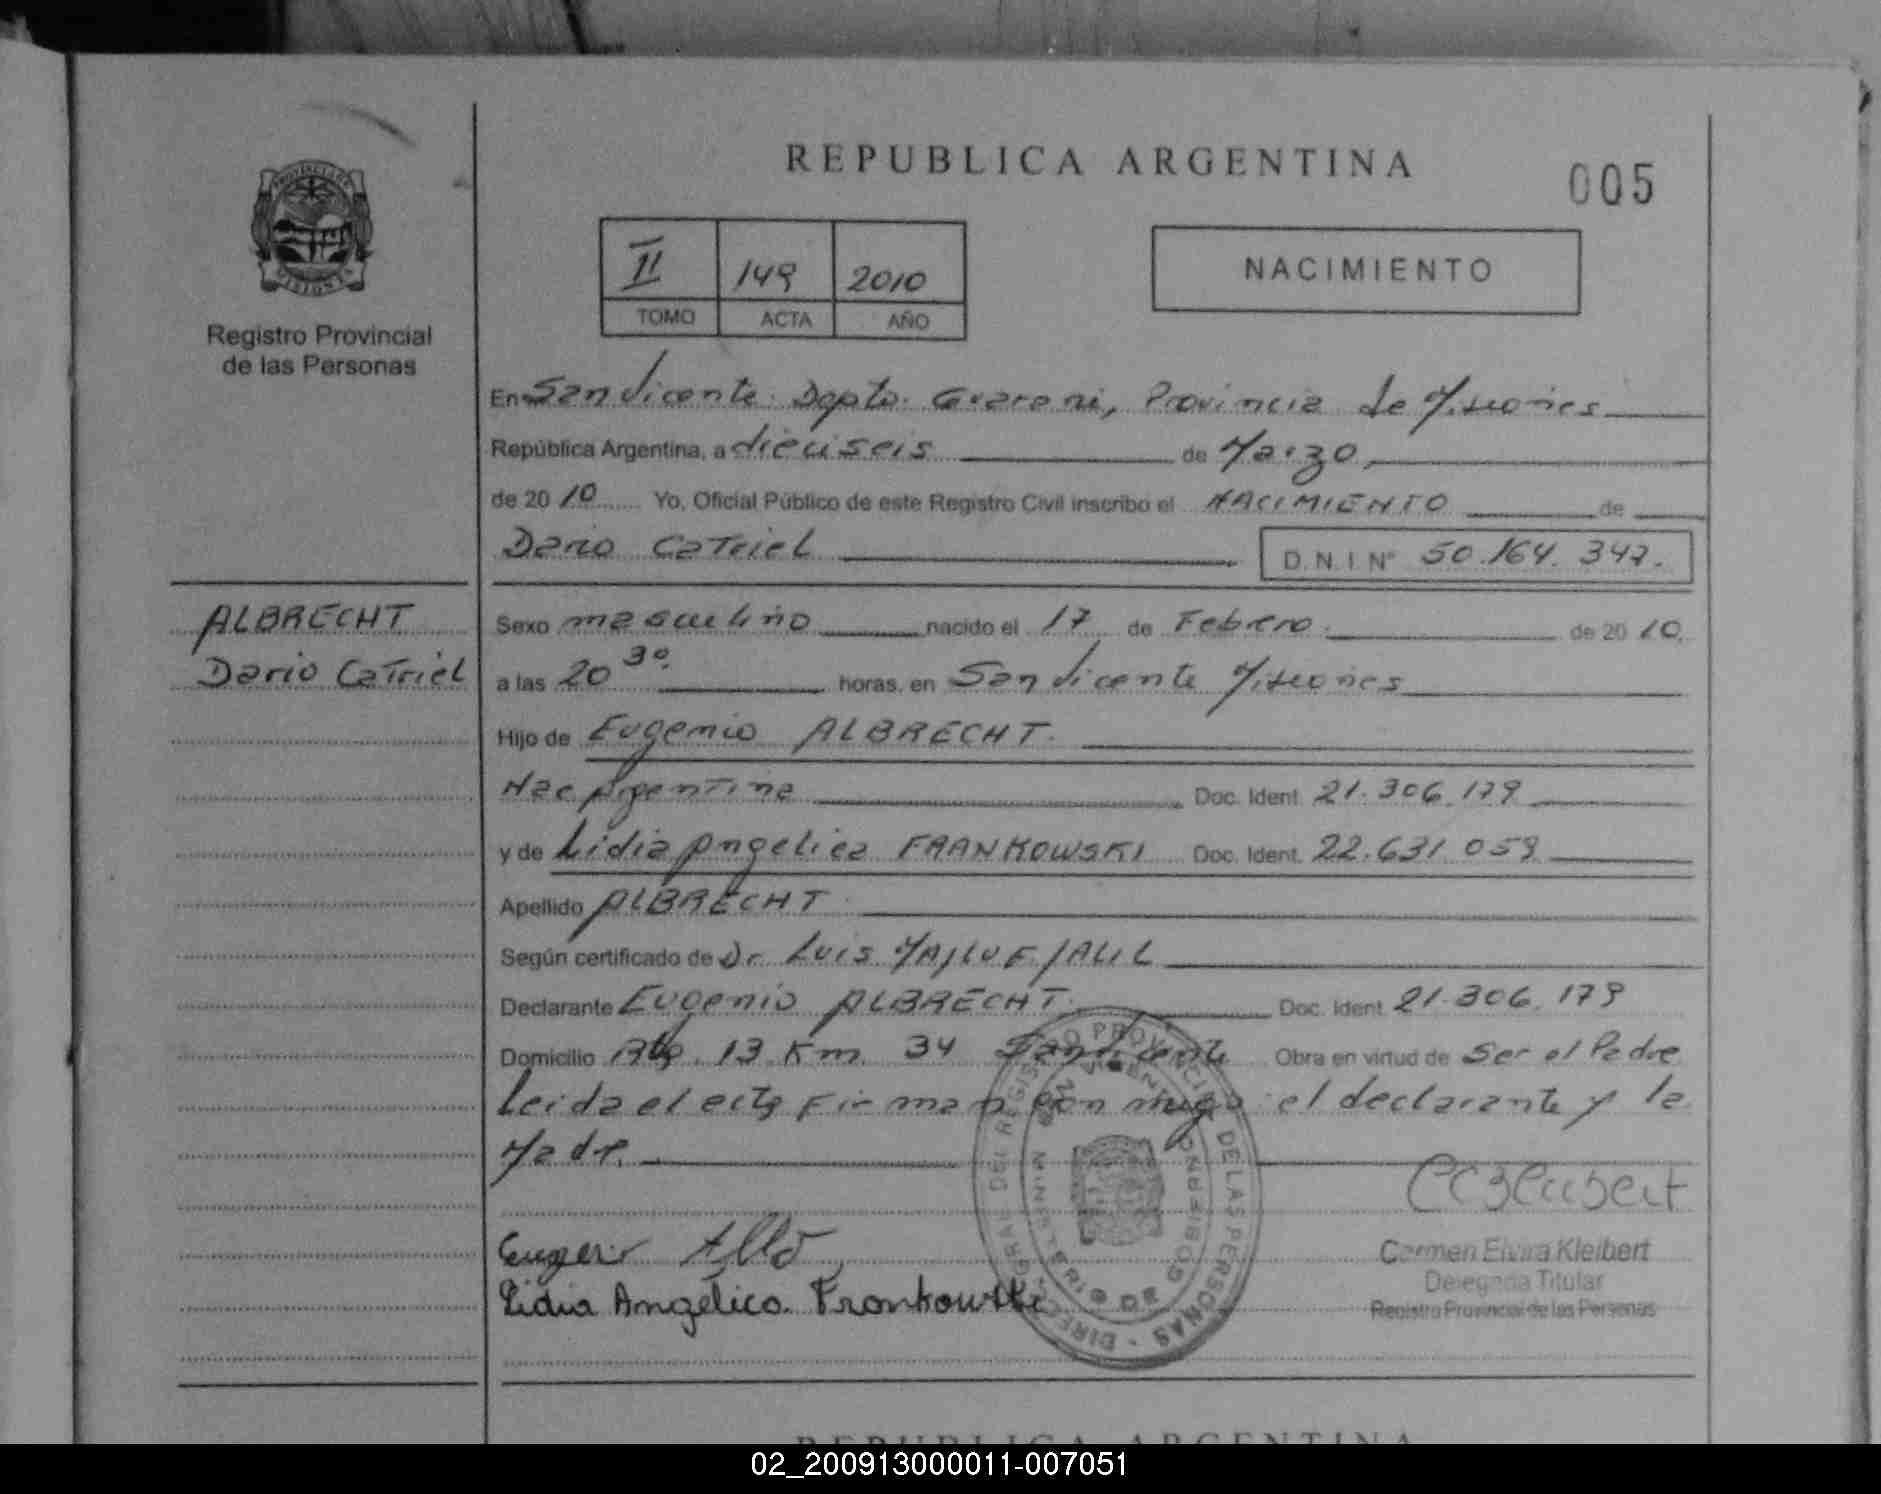 REPUBLICA ARGENTINA
005
II 149 2010
TOMO ACTA AÑO
NACIMIENTO
PROVINCIA DE MISIONES
Registro Provincial
de las Personas
En San Vicente Dpto. Guarani, Provincia de Misiones
República Argentina, a dieciseis de Marzo
de 2010 Yo, Oficial Público de este Registro Civil inscribo el NACIMIENTO de
Dario Catriel D.N.I Nº 50.164.347.
ALBRECHT
Dario Catriel
Sexo masculino nacido el 17 de Febrero de 2010.
a las 20 30. horas, en San Vicente Misiones
Hijo de Eugenio ALBRECHT.
Nac Argentina Doc. Ident. 21.306.179
y de Lidia Angelica FRANKOWSKI Doc. Ident. 22.631.059
Apellido ALBRECHT
Según certificado de Dr. Luis
Declarante Eugenio ALBRECHT. Doc. Ident. 21.306.179
Domicilio 13 Km. 34 San Vicente Obra en virtud de Ser el Padre
Leida el acta Firman conmigo el declarante y la
Madre.
Eugenio
Lidia Angélica Frankowski
DIRECC. GRAL DEL REGISTRO PROVINCIAL DE LAS PERSONAS
MINISTERIO DE GOBIERNO
SAN VICENTE
Carmen Elvira Kleibert
Delegada Titular
Registro Provincial de las Personas
REPUBLICA ARGENTINA
02_200913000011-007051